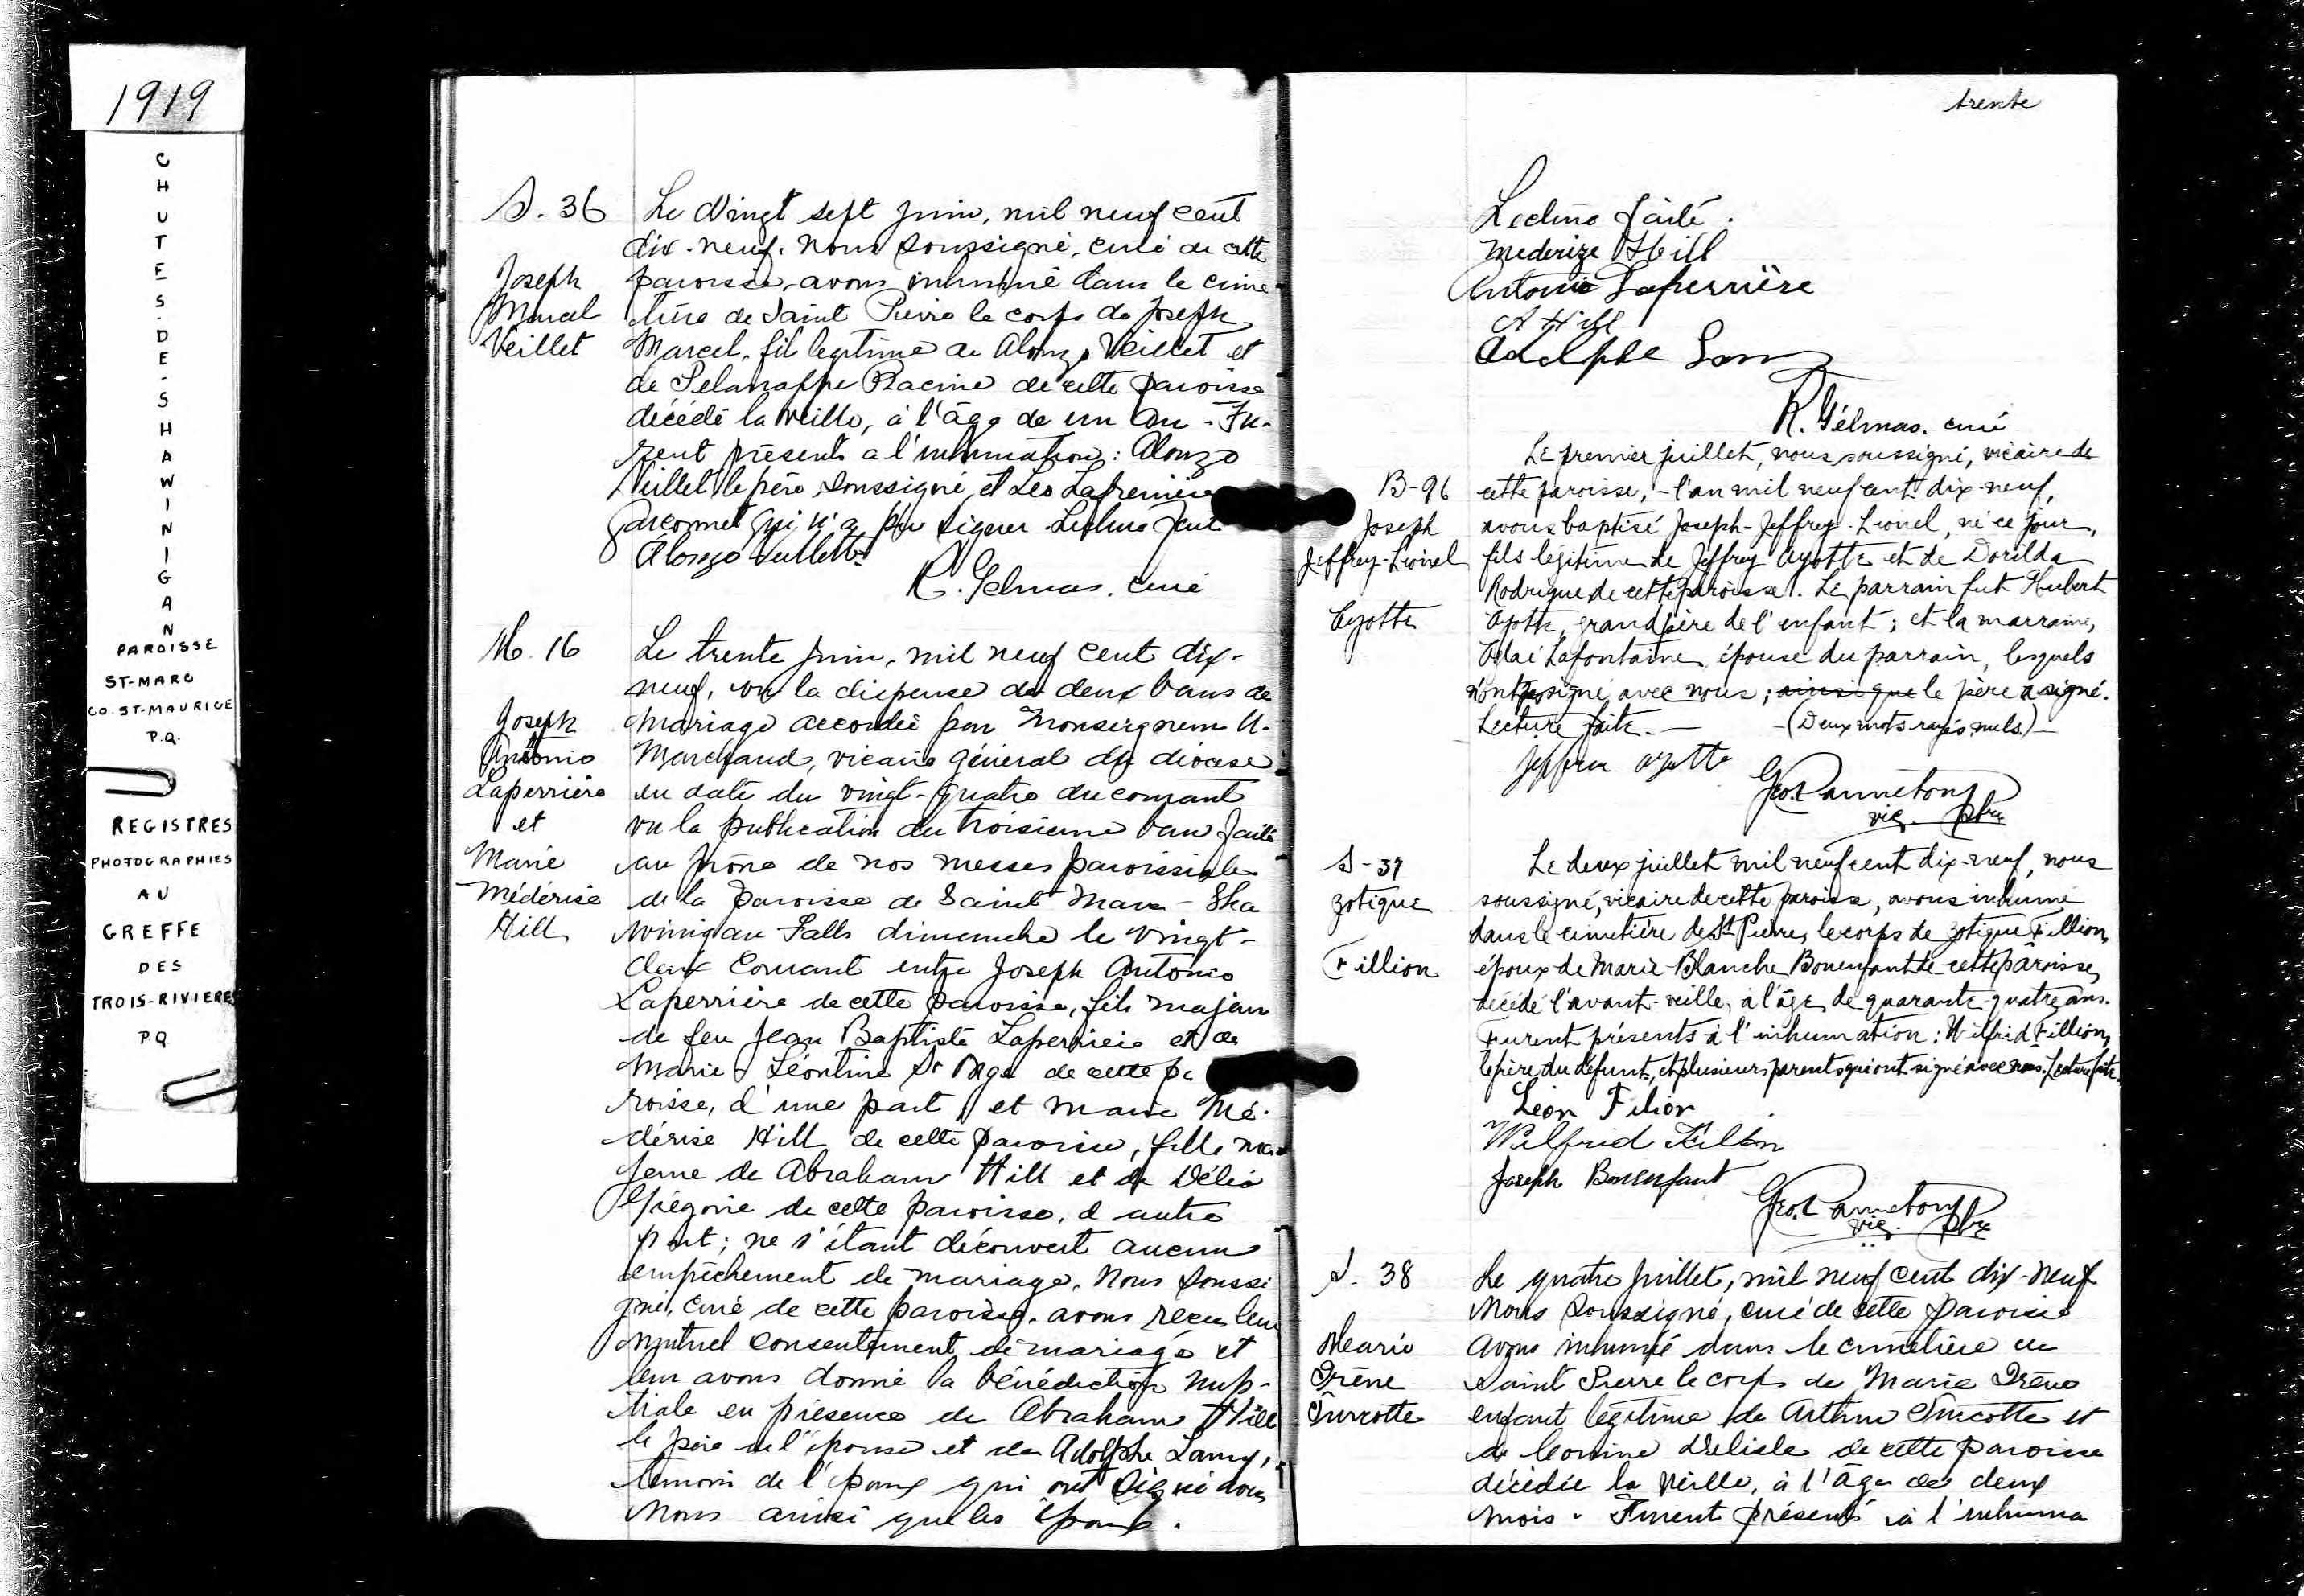 1919
CHUTES-DE-SHAWINIGAN
PAROISSE
ST-MARC
CO. ST-MAURICE
P.Q.
REGISTRES
PHOTOGRAPHIES
AU
GREFFE
DES
TROIS-RIVIERES
P.Q.
S. 36
Joseph
Marcel
Veillet
Le Vingt sept juin, mil neuf cent
dix-neuf. Nous soussigné, curé de cette
paroisse, avons inhumé dans le cime-
tière de Saint Pierre le corps de Joseph
Marcel, fils legitime de Alonzo Veillet et
de Racine de cette paroisse
décédé la veille, à l'âge de un an - Fu-
rent présents a l'inhumation: Alonzo
Veillet le père soussigné, et Leo Lafrenière
qui n'a pu signer. Lecture faite
Alonzo Veillette
R. Gélinas, curé
M. 16
Joseph
Antonio
Laperrière
et
Marie
Médérise
Hill
Le trente juin, mil neuf cent dix-
neuf, vu la dispense de deux bans de
mariage accordée par Monseigneur U.
Marchand, vicaire général du diocèse
en date du vingt-quatre du courant
vu la publication du troisième ban faite
au prône de nos messes paroissiales
de la paroisse de Saint Marc - Sha
winigan Falls dimanche le vingt-
deux courant entre Joseph Antonio
Laperrière de cette paroisse, fils majeur
de feu Jean Baptiste Laperrière et de
Marie Léontine St de cette pa
roisse, d'une part, et Marie Mé-
dérise Hill de cette paroisse, fille ma-
jeure de Abraham Hill et de Délia
Grégoire de cette paroisse, d'autre
part; ne s'étant découvert aucun
empêchement de mariage. Nous soussi
gné, curé de cette paroisse, avons reçu leur
mutuel consentement de mariage et
leur avons donné la bénédiction nup-
tiale en présence de Abraham Hill
le père de l'épouse et de Adolphe Lamy,
témoin de l'époux qui ont signé avec
nous ainsi que les époux.
trente
Lecture faite.
Mederize Hill
Antonio Laperrière
A Hill
Adolphe Lamy
R. Gélinas. curé
B-96
Joseph
Jeffrey-Lionel
Ayotte
Le premier juillet, nous soussigné, vicaire de
cette paroisse, - l'an mil neuf cent dix-neuf,
avons baptisé Joseph-Jeffrey-Lionel, né ce jour,
fils légitime de Jeffrey Ayotte et de Dorilda
Rodrigue de cette paroisse. Le parrain fut Hubert
Ayotte, grand père de l'enfant; et la marraine,
Lafontaine, épouse du parrain, lesquels
n'ont pas signé avec nous; ainsi que le père a signé.
Lecture faite. - - (Deux mots rayés nuls.) -
Jeffrey Ayotte
Geo. Panneton
vic. ptre
S-37
Zotique
Fillion
Le deux juillet mil neuf cent dix-neuf, nous
soussigné, vicaire de cette paroisse, avons inhumé
dans le cimetière de St Pierre, le corps de Zotique Fillion,
époux de Marie-Blanche Bonenfant de cette paroisse,
décédé l'avant-veille, à l'âge de quarante-quatre ans.
Furent présents à l'inhumation: Wilfrid Fillion,
le père du défunt, et plusieurs parents qui ont signé avec nous. Lecture faite.
Léon Filion
Wilfrid Fillion
Joseph Bonenfant
Geo. Panneton
vic. ptre
S. 38
Marie
Irène
Turcotte
Le quatre juillet, mil neuf cent dix-neuf
Nous soussigné, curé de cette paroisse
avons inhumé dans le cimetière de
Saint Pierre le corps de Marie Irène
enfant légitime de Arthur Turcotte et
de Delisle de cette paroisse
décédée la veille, à l'âge de deux
mois. Furent présents à l'inhuma